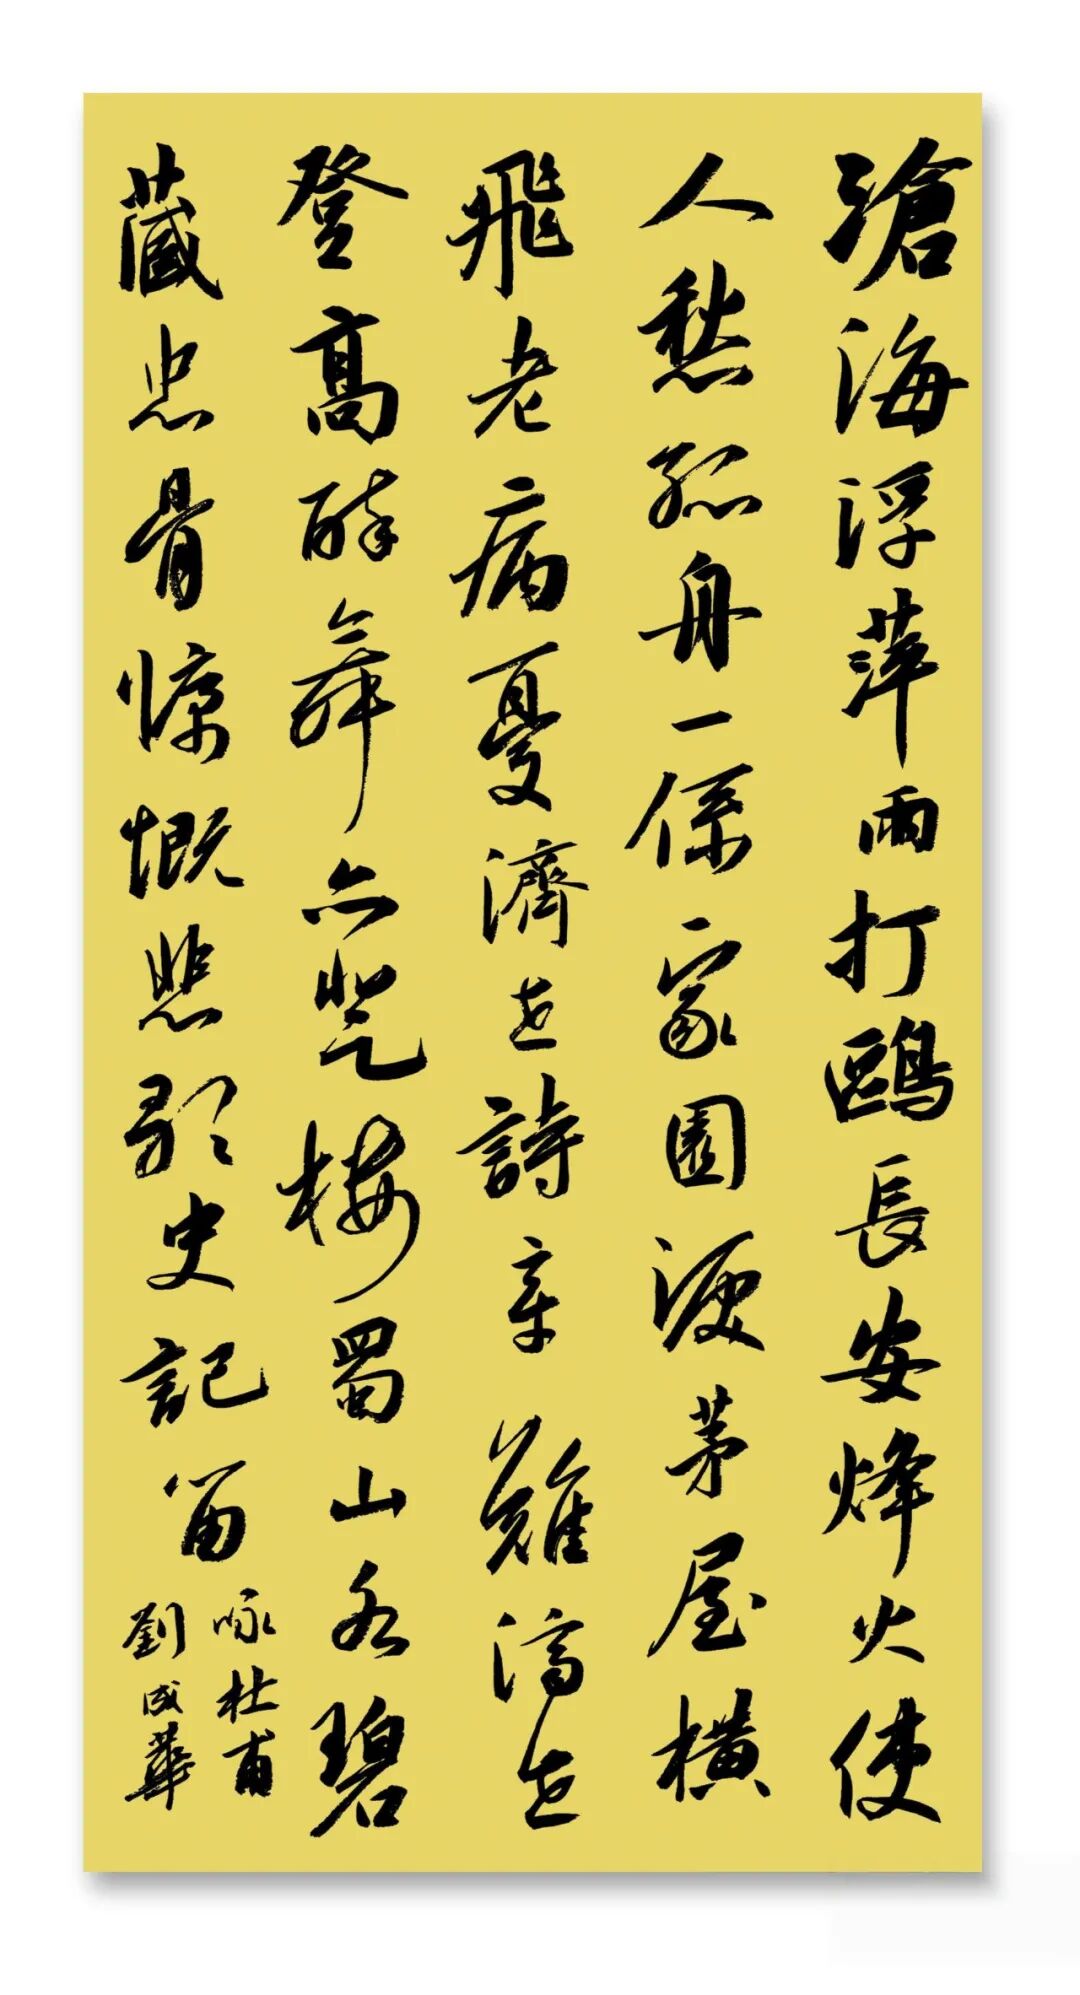 滄海浮萍雨打鷗長安烽火使
人愁孤舟一係家園淚茅屋橫
飛老病憂濟世詩章難濟世
登高醉舞亦樓蜀山水碧
藏忠骨慷慨悲歌史記留
咏杜甫
劉成華